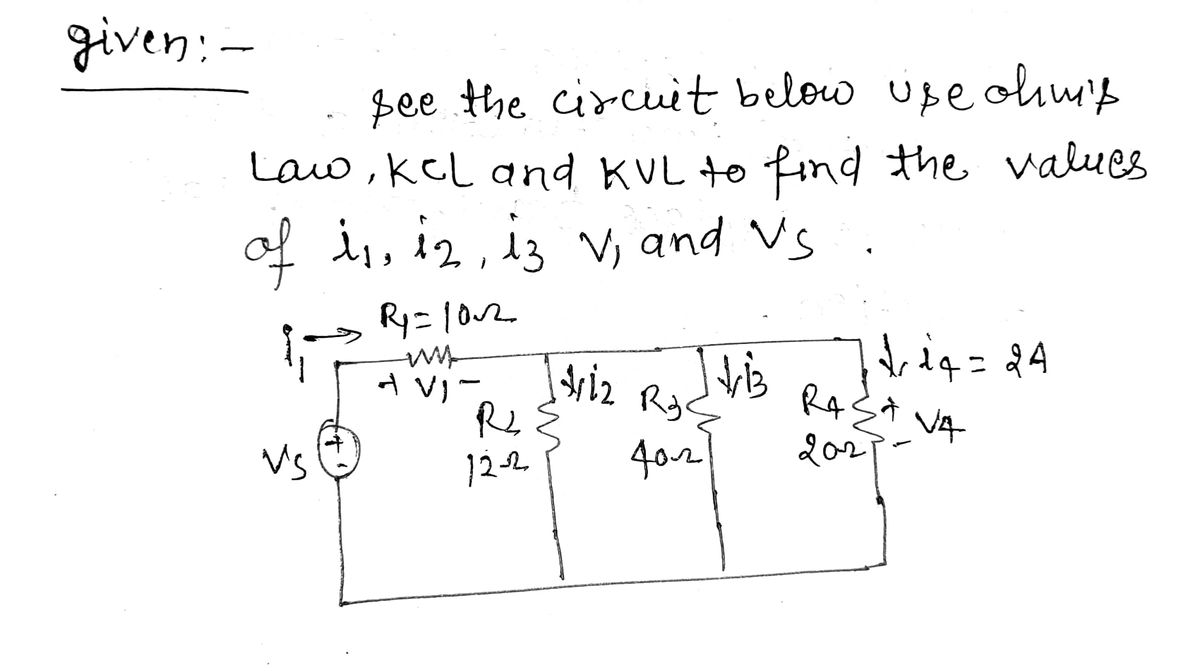 given:-
see the circuit below use ohm's
Law, KCL and KVL to find the values
of i1, i2, i3 V1 and Vs .
i1 → R1 = 10Ω
+ V1 -
↓ i2
↓ i3
↓ i4 = 2A
R2
12Ω
R3
40Ω
R4
20Ω
+ V4 -
Vs
+
-